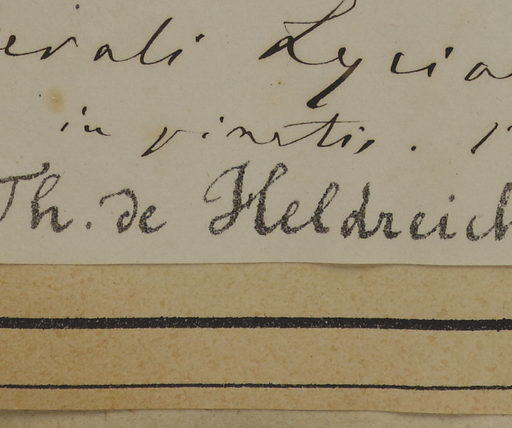 erali Lycia
in pinetis.
Th. de Heldreich